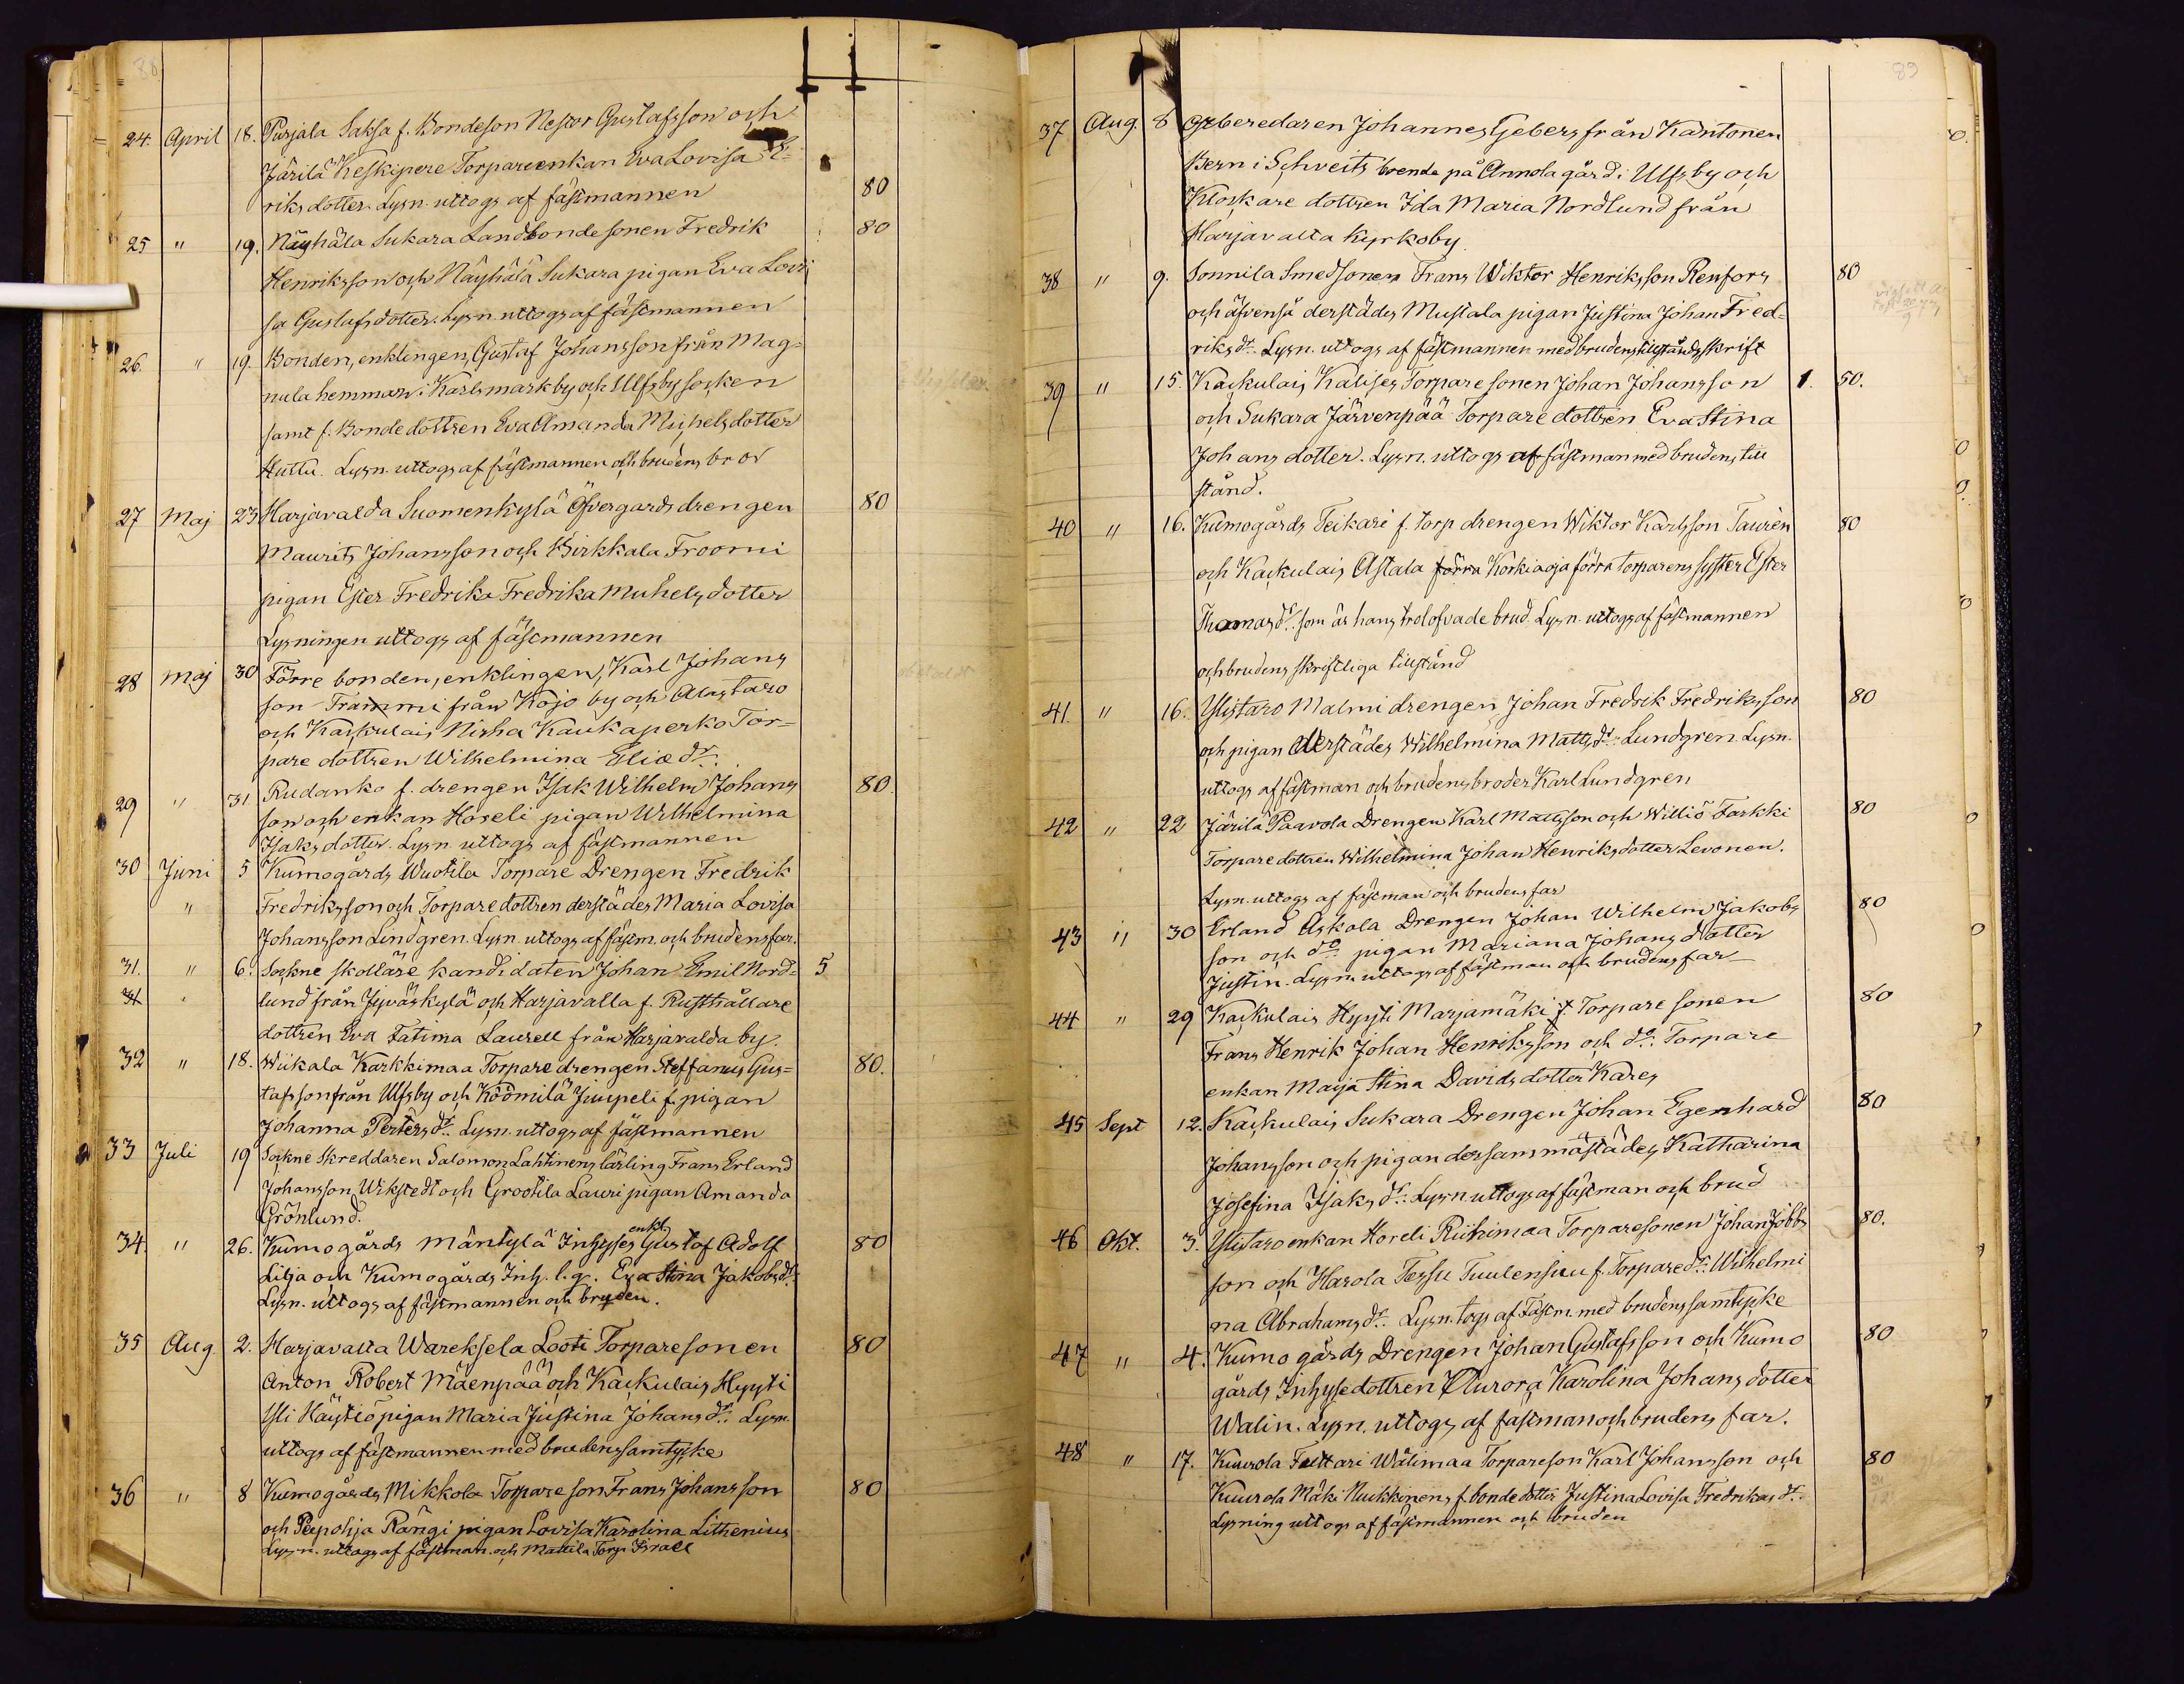 88
24. April 18. Purjala Saksa f. Bondeson Nestor Gustafsson och
Järilä Keskipere Torpareenkan Eva Lovisa E-
riksdotter. Lysn. uttogs af fästmannen 80
25 " 19. Näyhälä Sukara Landbondesonen Fredrik 80
Henriksson och Näyhälä Sukara pigan Eva Lovi
sa Gustafsdotter. Lysn. uttogs af fästmannen
26. " 19. Bonden, enklingen, Gustaf Johansson från Mag-
nula hemman i Karlsmark by och Ulfsby socken
samt f. Bondedottren Eva Amanda Michelsdotter
Huttu. Lysn. uttogs af fästmannen och brudens bror
27 Maj 23 Harjavalda Suomenkylä Öfvergårds drengen 80
Maurits Johansson och Pirkkala Froomi
pigan Ester Fredrika Fredrika Michelsdotter
Lysningen uttogs af fästmannen
28 Maj 30 Förre bonden, enklingen, Karl Johans
son Frammi från Kojo by och Alastaro
och Kackulais Nisha Kaukaperko Tor-
pare dottren Wilhelmina Elie dr.
29 " 31 Rudanko f. drengen Isak Wilhelm Johans 80
son och enkan Horeli pigan Wilhelmina
Isaksdotter. Lysn. uttogs af fästmannen
30 Juni 5 Kumogårds Wuotila Torpare Drengen Fredrik
" Fredriksson och Torparedottren derstädes Maria Lovisa
Johansson Lindgren. Lysn. uttogs af fästm. och brudens far.
31. " 6. Sockne skollärekandidaten Johan Emil Nord- 5
lund från Jyväskylä och Harjavalla f. Rusthållare
dottren Eva Fatima Laurell från Harjavalda by.
32 " 18. Wiikala Karkkimaa Torparedrengen Steffanus Gus- 80.
tafsson från Ulfsby och Köömilä Jimpeli f. pigan
Johanna Perters dr. Lysn. uttogs af fästmannen
33 Juli 19 Sockne Skreddaren Salomon Lahtinens lärling Frans Erland
Johansson Wikstedt och Grootila Lauri pigan Amanda
Grönlund.
enkl.
34. " 26. Kumogårds Mäntylä Inhyses Gustaf Adolf 80
Lilja och Kumogårds Inh. l.g. Eva Stina Jakobs dr.
Lysn. uttogs af fästmannen och bruden.
35 Aug 2. Harjavalta Wareksela Looti Torparesonen 80
Anton Robert Mäenpää och Kackulais Hyyti
Yli Häytiö pigan Maria Justina Johans dr. Lysn.
uttogs af fästmannen med brudens samtycke
36 " 8 Kumogårds Mikkola Torpare son Frans Johansson 80
och Peepohja Rängi pigan Lovisa Karolina Lithenius
Lysn. uttogs af fästman. och Mattila Torp. Israel
89
37 Aug. 8 Ostberedaren Johannes Gebers från Kantonen
Bern i Schveits boende på Annola gård i Ulfsby och
Klockare dottren Ida Maria Nordlund från
Harjavalta Kyrkoby.
38 " 9. Sonnila Smedsonen Frans Wiktor Henriksson Renfors 80
och äfvenså derstädes Mustala pigan Justina Johan Fred-
riks dr. Lysn. uttogs af fästmannen med brudens tillståndsskrift
39 " 15. Kackulais Kalises Torparesonen Johan Johansson 1. 50.
och Sukara Järvenpää Torparedottren Eva Stina
Johansdotter. Lysn. uttogs af fästman med brudens till
stånd.
40 " 16. Kumogårds Teikari f. torp drengen Wiktor Karlsson Taurén 80
och Kackulais Astala förra Korkiaoja förra torparens syster Ester
Thomas dr. som är hans trolofvade brud. Lysn. uttogs af fästmannen
och brudens skriftliga tillstånd
41. " 16. Ylistaro Malmi drengen Johan Fredrik Fredriksson 80
och pigan derstädes Wilhelmina Matts dr. Lundgren. Lysn.
uttogs af fästman och brudens broder Karl Lundgren
42 " 22 Järilä Paavola Drengen Karl Mattsson och Williö Tarkki 80
Torparedottren Wilhelmina Johan Henriksdotter Levonen.
Lysn. uttogs af fästman och brudens far
43 " 30 Erland Askola Drengen Johan Wilhelm Jakobs 80
son och do pigan Mariana Johansdotter
Justin. Lysn. uttogs af fästman och brudens far
44 " 29 Kackulais Hyyti Marjamäki f. Torparesonen 80
Frans Henrik Johan Henriksson och do. Torpare
enkan Maija Stina Davidsdotter Kares
45 Sept 12. Kackulais Sukara Drengen Johan Egenhard 80
Johansson och pigan dersammastädes Katharina
Josefina Isaks dr. Lysn. uttogs af fästman och brud
46 Okt. 3. Ylistaro enkan Horeli Riihimaa Torparesonen Johan Jobbs 80.
son och Harola Tessu Tuulensuu f. Torpare dr. Wilhelmi
na Abrahams dr. Lysn. togs af Fästm. med brudens samtycke
47 " 4. Kumo gårds Drengen Johan Gustafsson och Kumo 80
gårds Inhysedottren Aurora Karolina Johansdotter
Walin. Lysn. uttogs af fästman och brudens far.
48 " 17. Kuurola Tuttari Wälimaa Torpareson Karl Johansson och 80
Kuurola Mäki Nuikkinens f. bondedotter Justina Lovisa Fredrikas dr.
Lysning uttogs af fästmannen och bruden